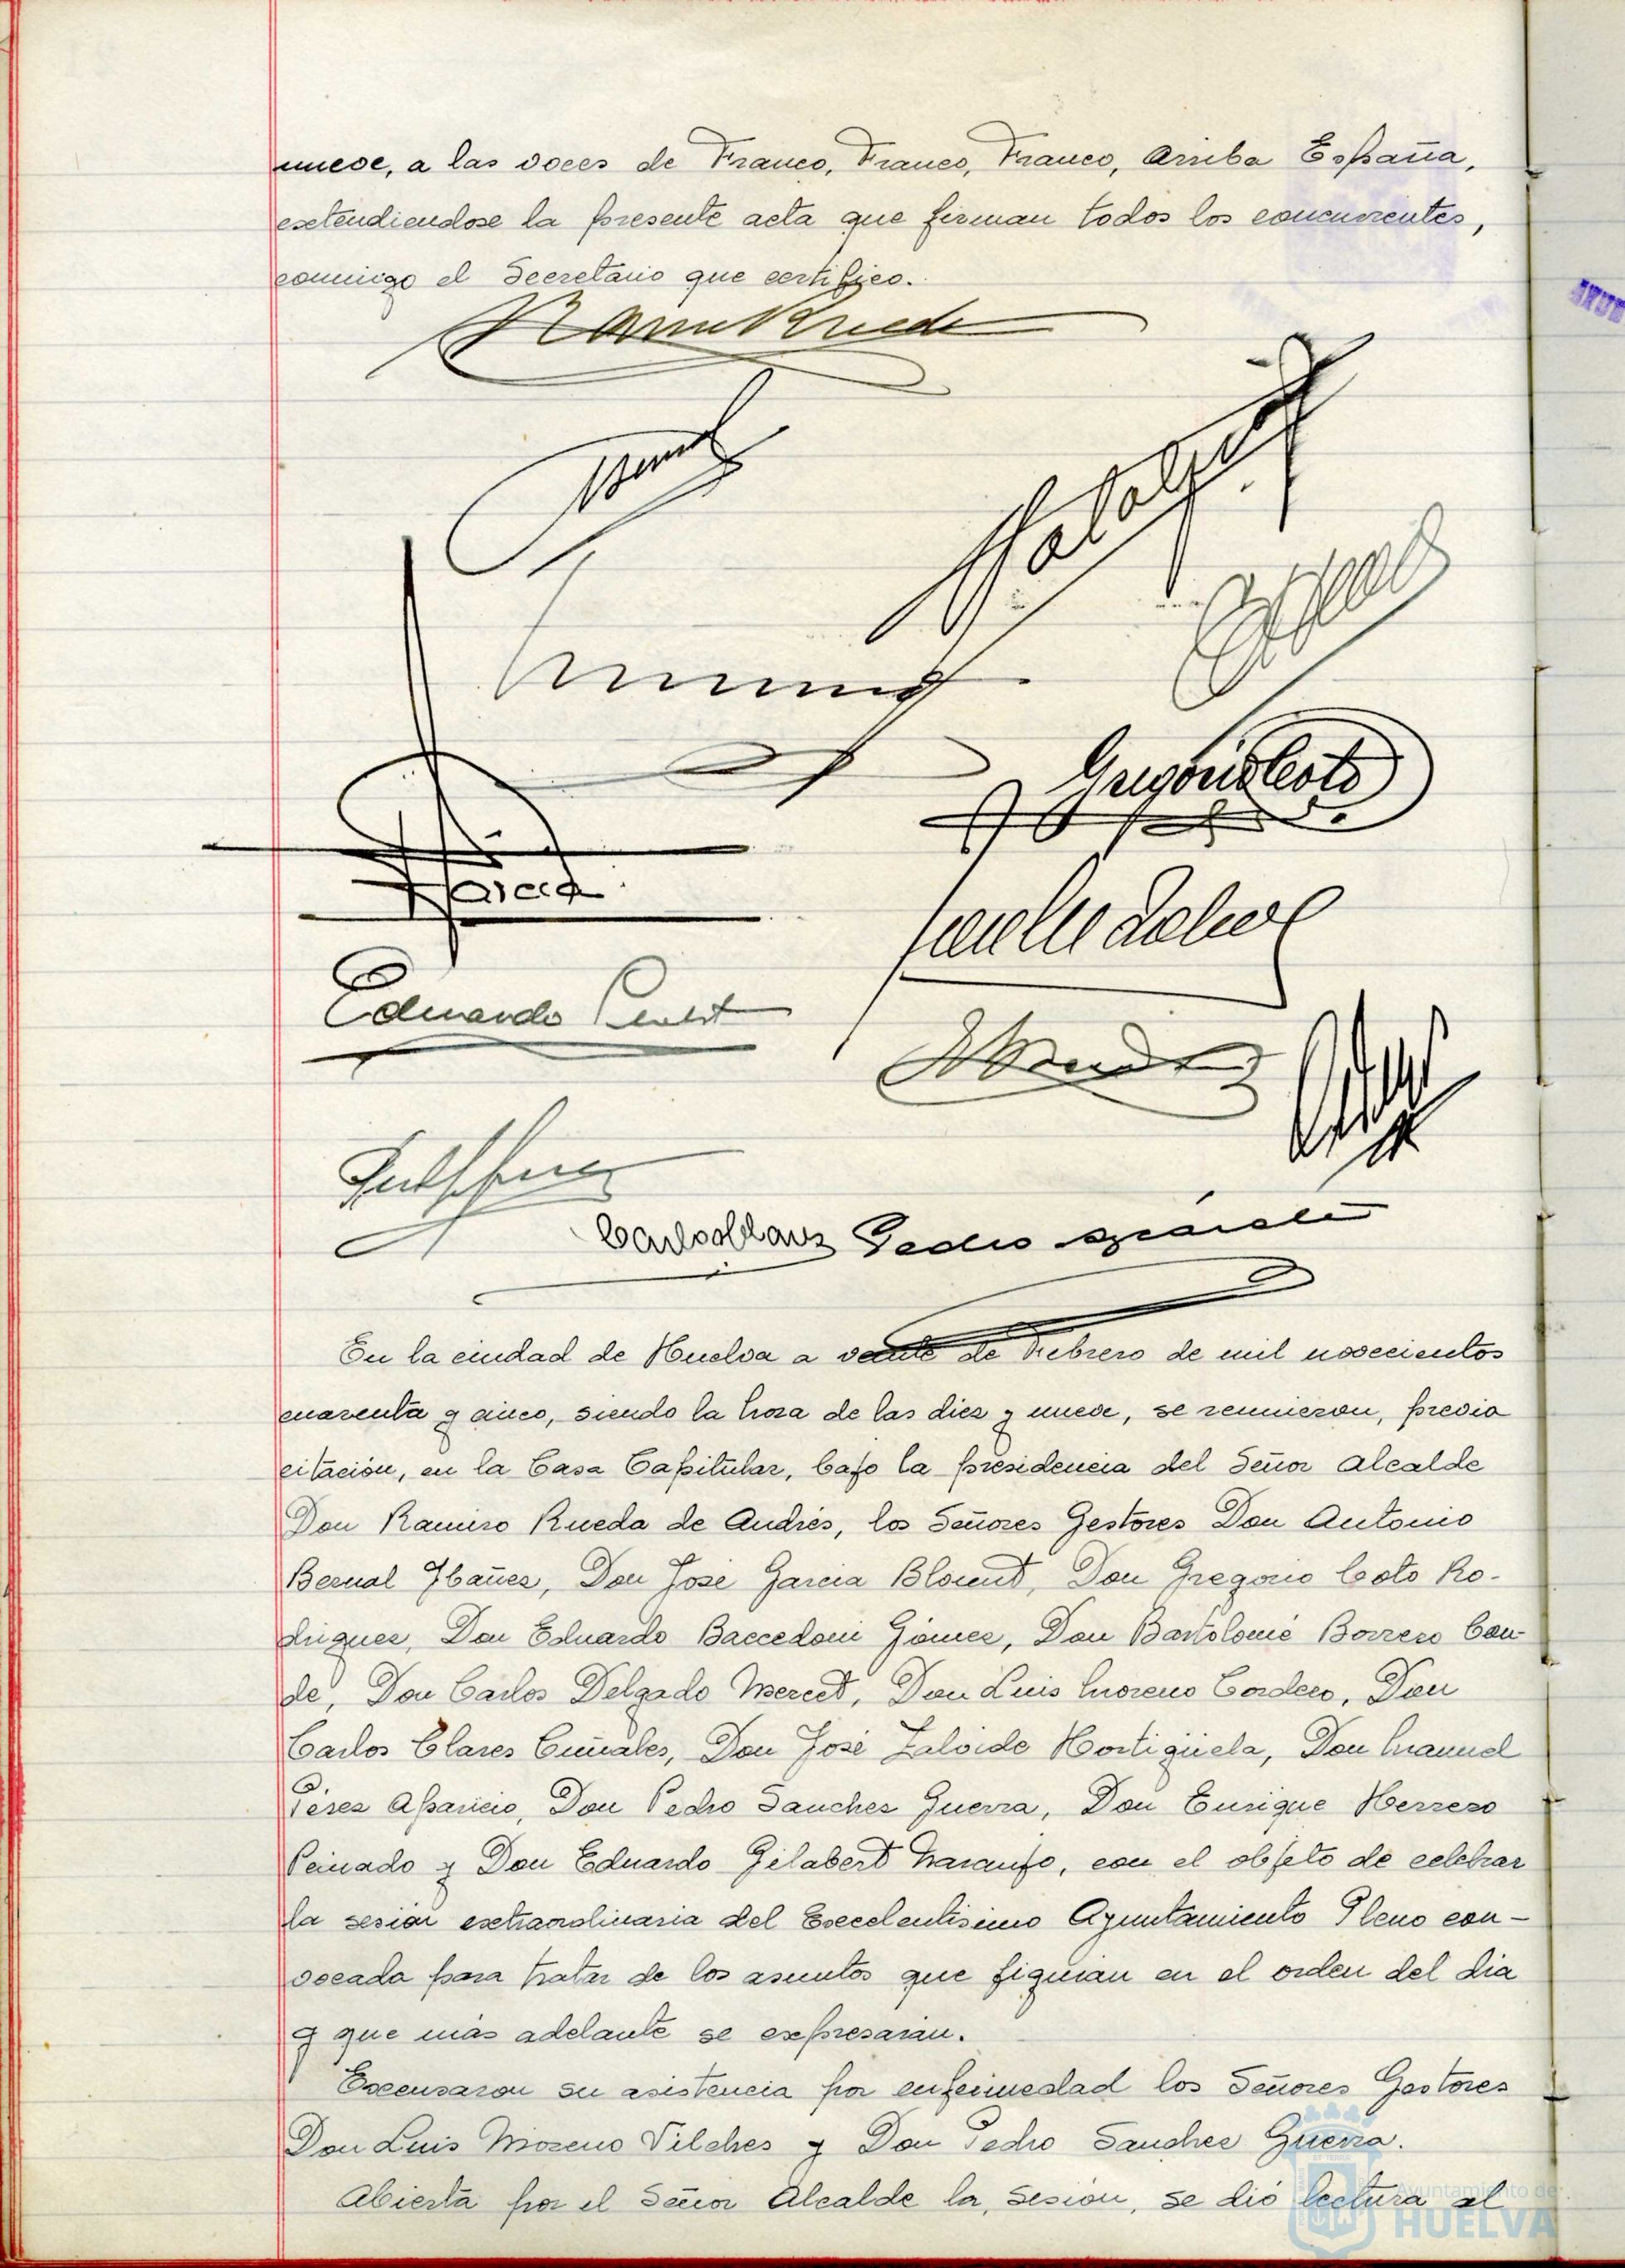 nueve, a las voces de Franco, Franco, Franco, Arriba España,
extendiendose la presente acta que firman todos los concurrentes,
conmigo el Secretario que certifico.
Gregorio Coto
Garcia
Eduardo
Carlos Clares Pedro
En la ciudad de Huelva a veinte de Febrero de mil novecientos
cuarenta y cinco, siendo la hora de las diez y nueve, se reunieron, previa
citación, en la Casa Capitular, bajo la presidencia del Señor Alcalde
Don Ramiro Rueda de Andrés, los Señores Gestores Don Antonio
Bernal Ibañez, Don José Garcia Blount, Don Gregorio Coto Ro-
driguez, Don Eduardo Baccedoni Gómez, Don Bartolomé Borrero Con-
de, Don Carlos Delgado Mercet, Don Luis Moreno Cordero, Don
Carlos Clares Cuñales, Don José Zalvide Hortigüela, Don Manuel
Pérez Aparicio, Don Pedro Sanchez Guerra, Don Enrique Herrero
Peinado y Don Eduardo Gilabert Naranjo, con el objeto de celebrar
la sesión extraordinaria del Excelentisimo Ayuntamiento Pleno con-
vocada para tratar de los asuntos que figuran en el orden del dia
y que más adelante se expresarán.
Excusaron su asistencia por enfermedad los Señores Gestores
Don Luis Moreno Vilches y Don Pedro Sanchez Guerra.
Abierta por el Señor Alcalde la sesión, se dió lectura al
Ayuntamiento de
HUELVA